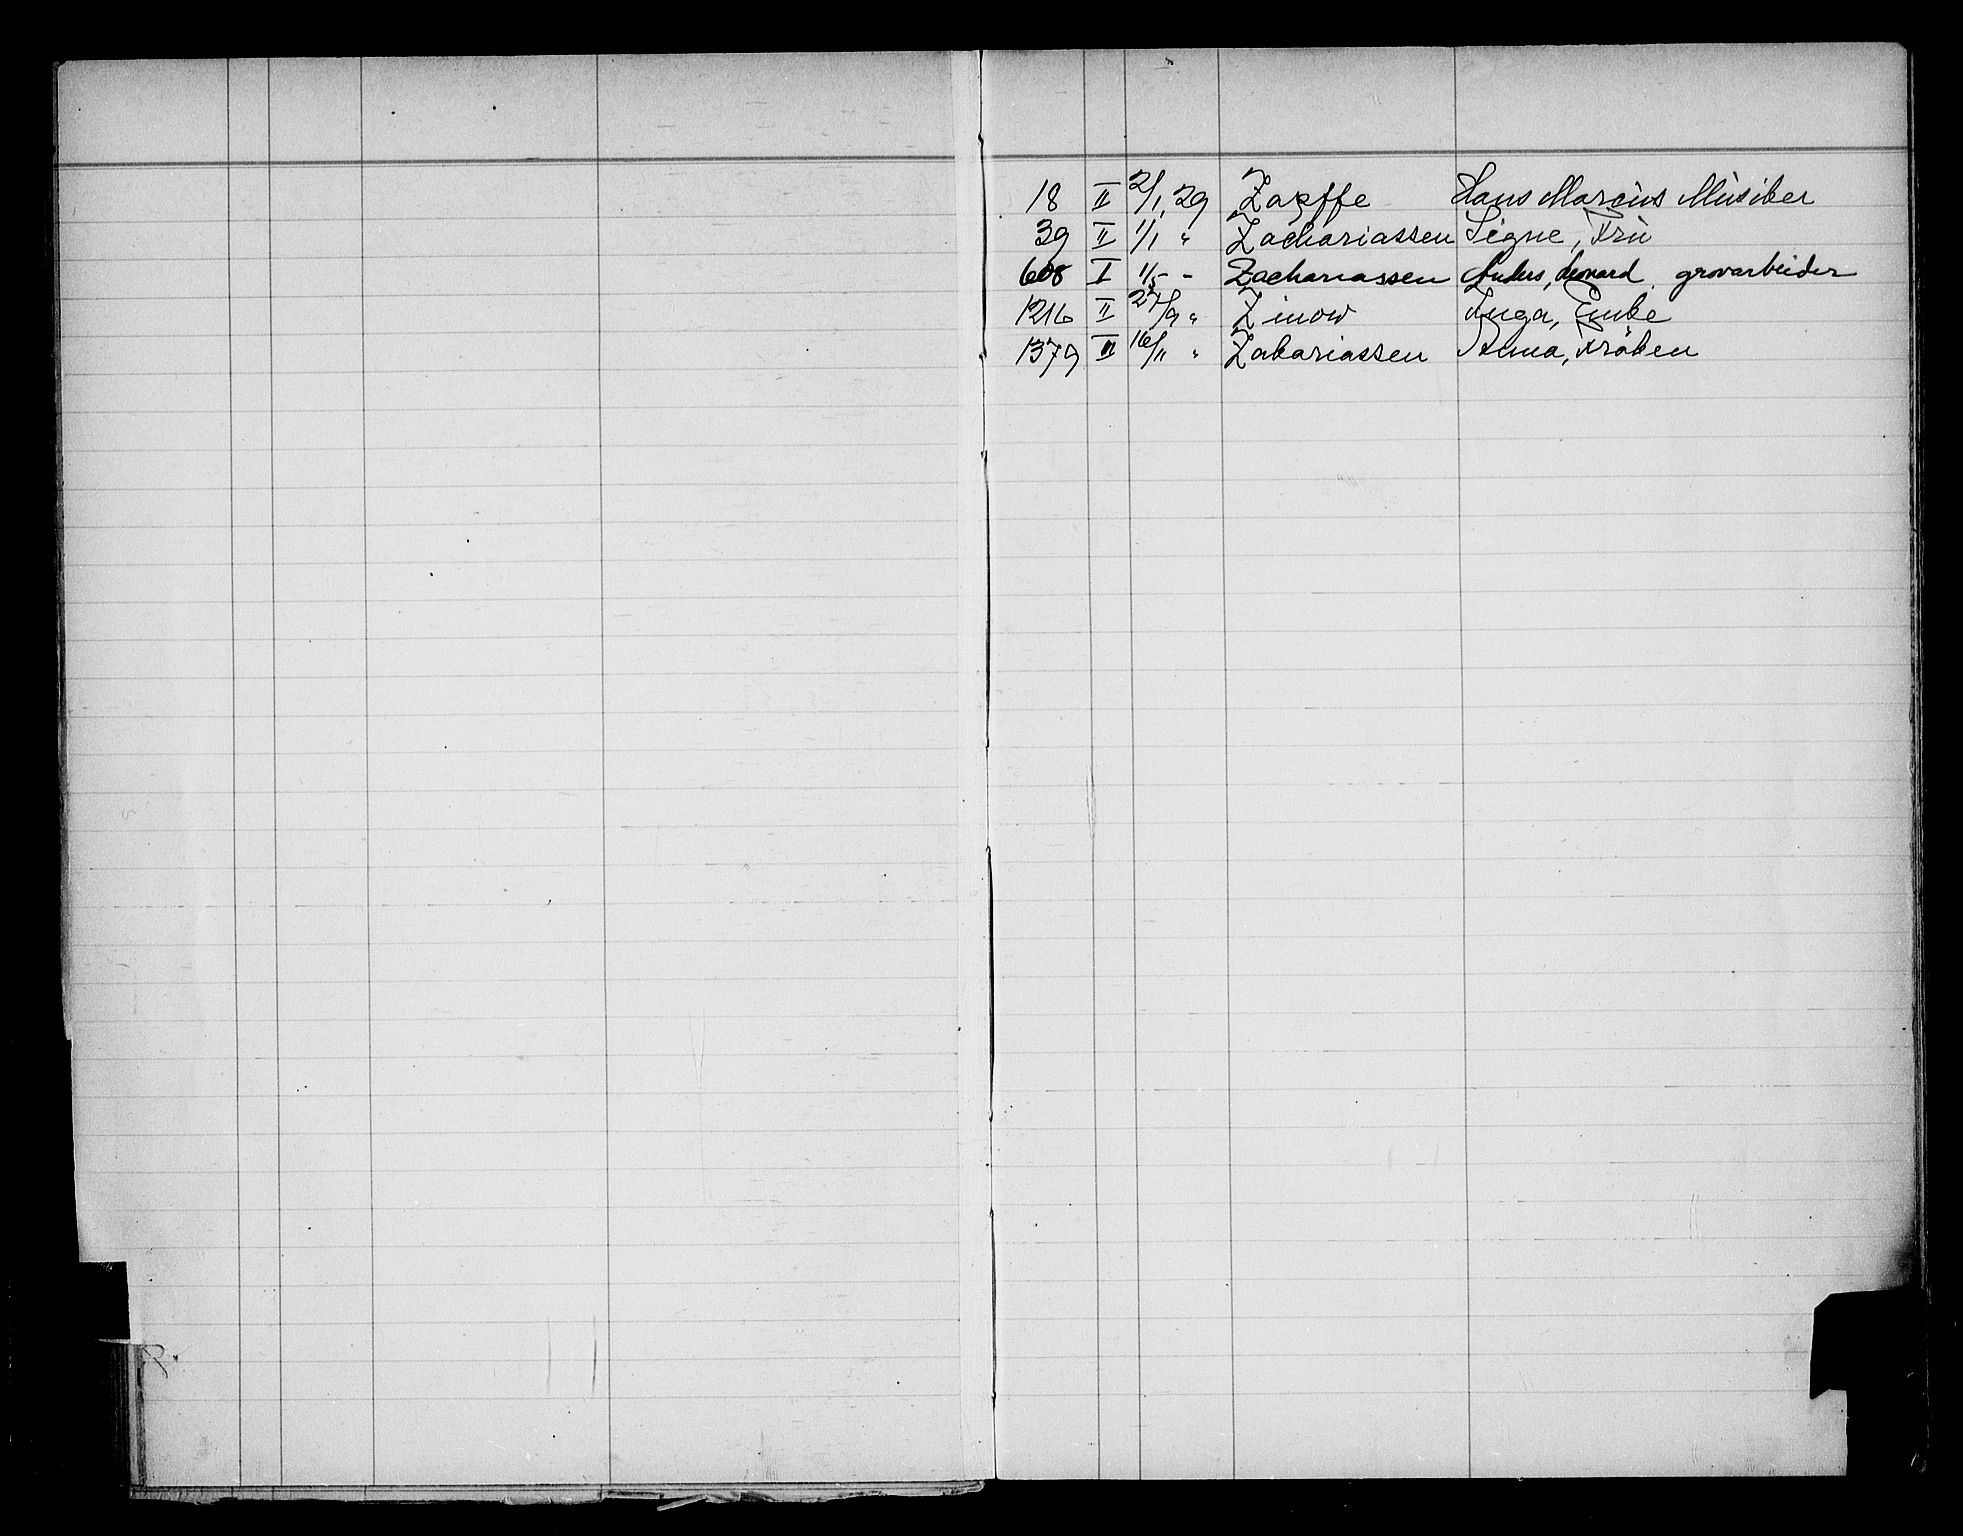 18 II 2/1 29 Zapffe Hans Marcus Musiker
39 II 1/1 " Zachariassen Signe, Fru
608 I 1/5 - Zachariassen Anders, Leonard, grovarbeider
1216 II 27/9 " Zinow Inga, Enke
1379 II 16/11 " Zakariassen Anna, Frøken